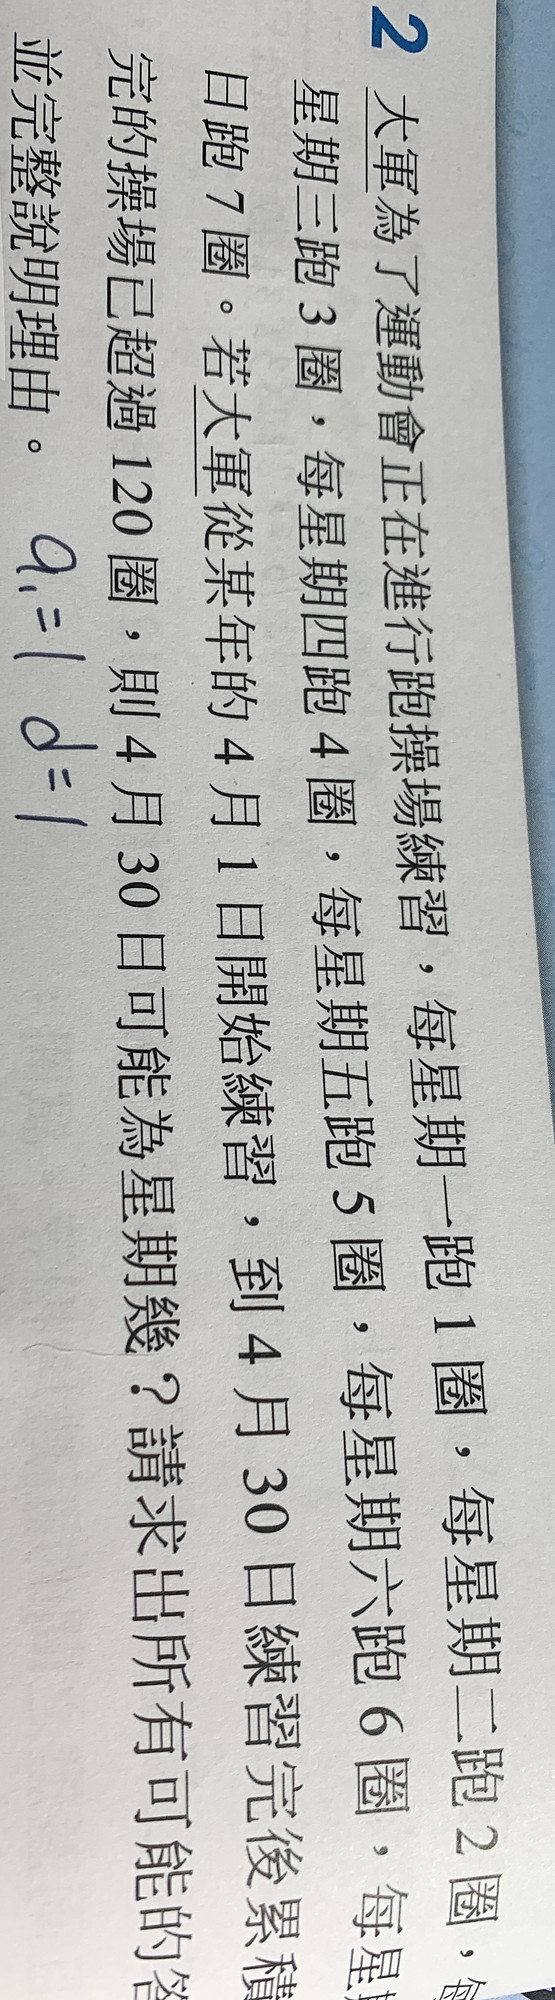 2 大軍為了運動會正在進行跑操場練習，每星期一跑 1 圈，每星期二跑 2 圈，每
星期三跑 3 圈，每星期四跑 4 圈，每星期五跑 5 圈，每星期六跑 6 圈，每星
日跑 7 圈。若大軍從某年的 4 月 1 日開始練習，到 4 月 30 日練習完後累積
完的操場已超過 120 圈，則 4 月 30 日可能為星期幾？請求出所有可能的答
並完整說明理由。
a₁=1 d=1